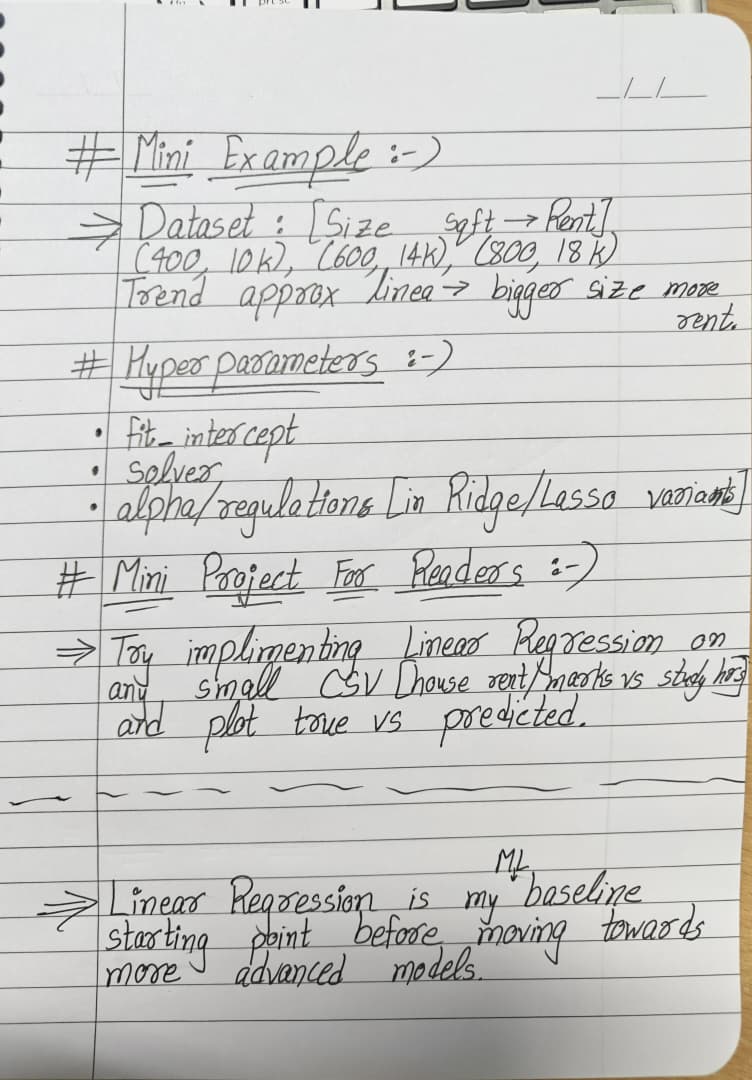 _/_/__
# Mini Example :-)
⇒ Dataset : [Size sqft → Rent]
(400, 10K), (600, 14K), (800, 18K)
Trend approx linea → bigger size more
rent.
# Hyperparameters :-)
• fit_intercept
• Solver
• alpha/regulations [in Ridge/Lasso variants]
# Mini Project For Readers :-)
⇒ Try implimenting Linear Regression on
any small CSV [house rent/marks vs study hrs]
and plot true vs predicted.
ML
⇒ Linear Regression is my baseline
starting point before moving towards
more advanced models.